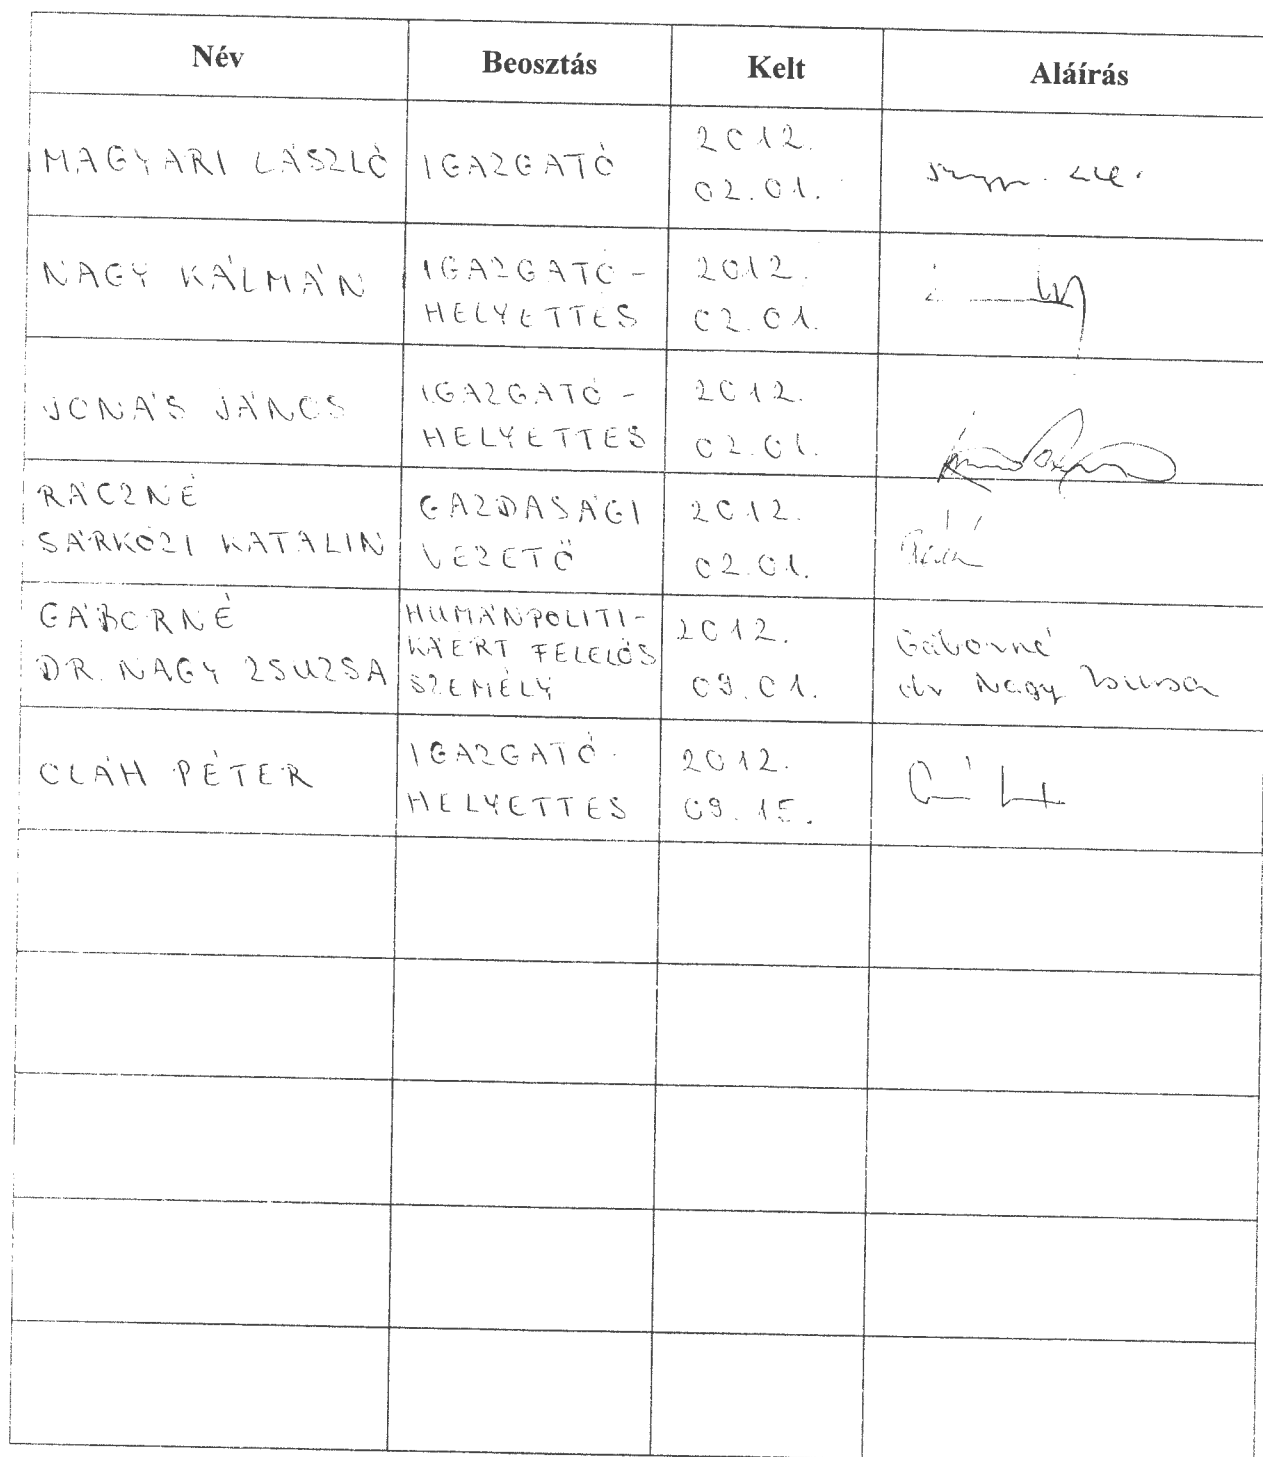 Név Beosztás Kelt Aláírás
MAGYARI LÁSZLÓ IGAZGATÓ 2012.
02.01.
NAGY KÁLMÁN IGAZGATÓ-
HELYETTES 2012.
02.01.
JÓNÁS JÁNOS IGAZGATÓ-
HELYETTES 2012.
02.01.
RÁCZNÉ
SÁRKÖZI KATALIN GAZDASÁGI
VEZETŐ 2012.
02.01.
GÁBORNÉ
DR. NAGY ZSUZSA HUMÁNPOLITI-
KÁÉRT FELELŐS
SZEMÉLY 2012.
09.01. Gáborné
dr Nagy Zsuzsa
OLÁH PÉTER IGAZGATÓ-
HELYETTES 2012.
09.15.